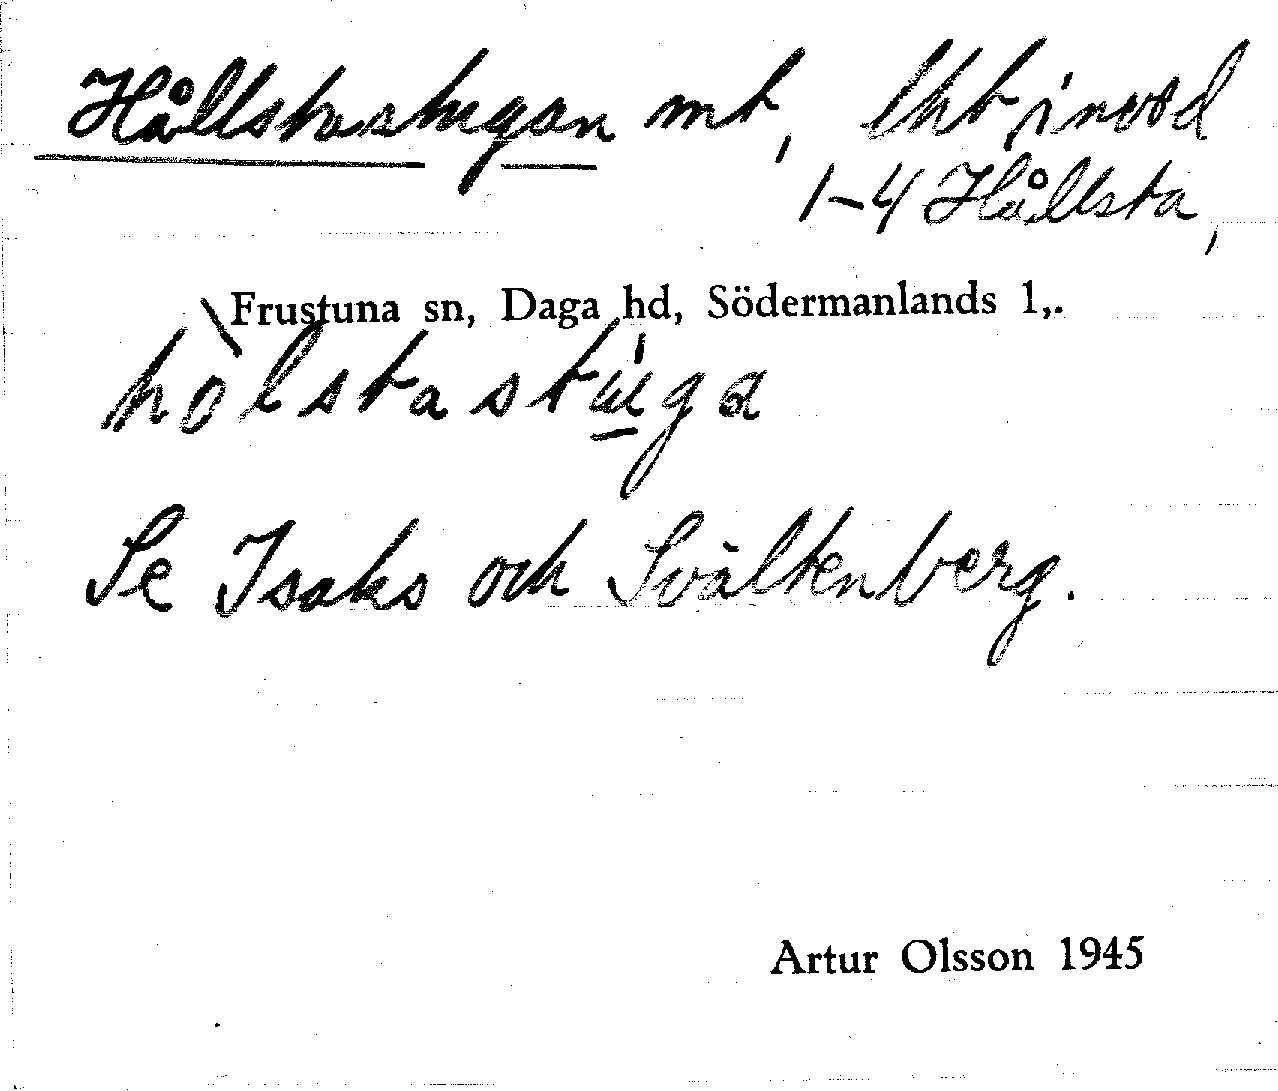 Hållstastugan mt, lht, i nord
1-4 Hållsta,
Frustuna sn, Daga hd, Södermanlands l,.
hòlstastú̱ga
Se Isaks och Svältenberg.
Artur Olsson 1945